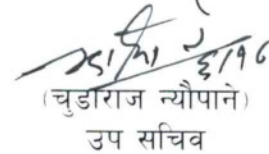 ६/१८
(चुडाराज न्यौपाने)
उप सचिव